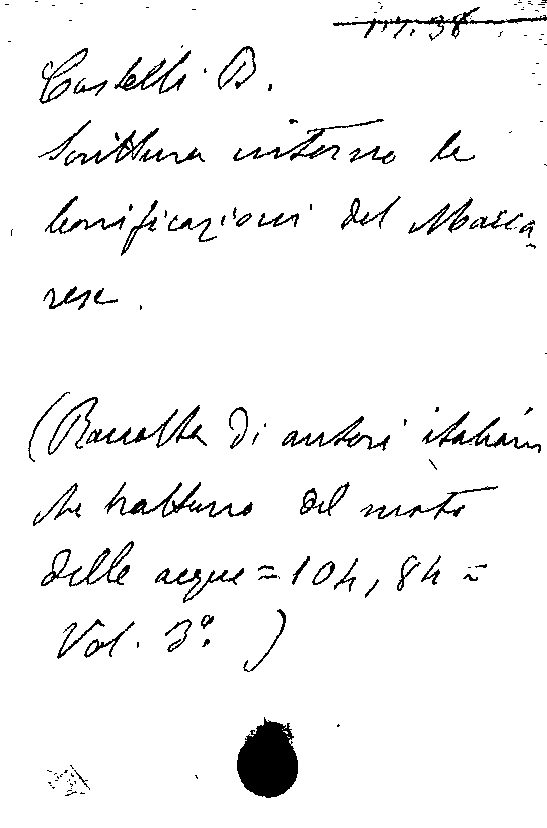 117.38
Castelli B.
Scrittura intorno le
bonificazioni del Macca
rese.
(Raccolta di autori italiani
che trattano del moto
delle acque = 104, 84 =
Vol. 3º. )